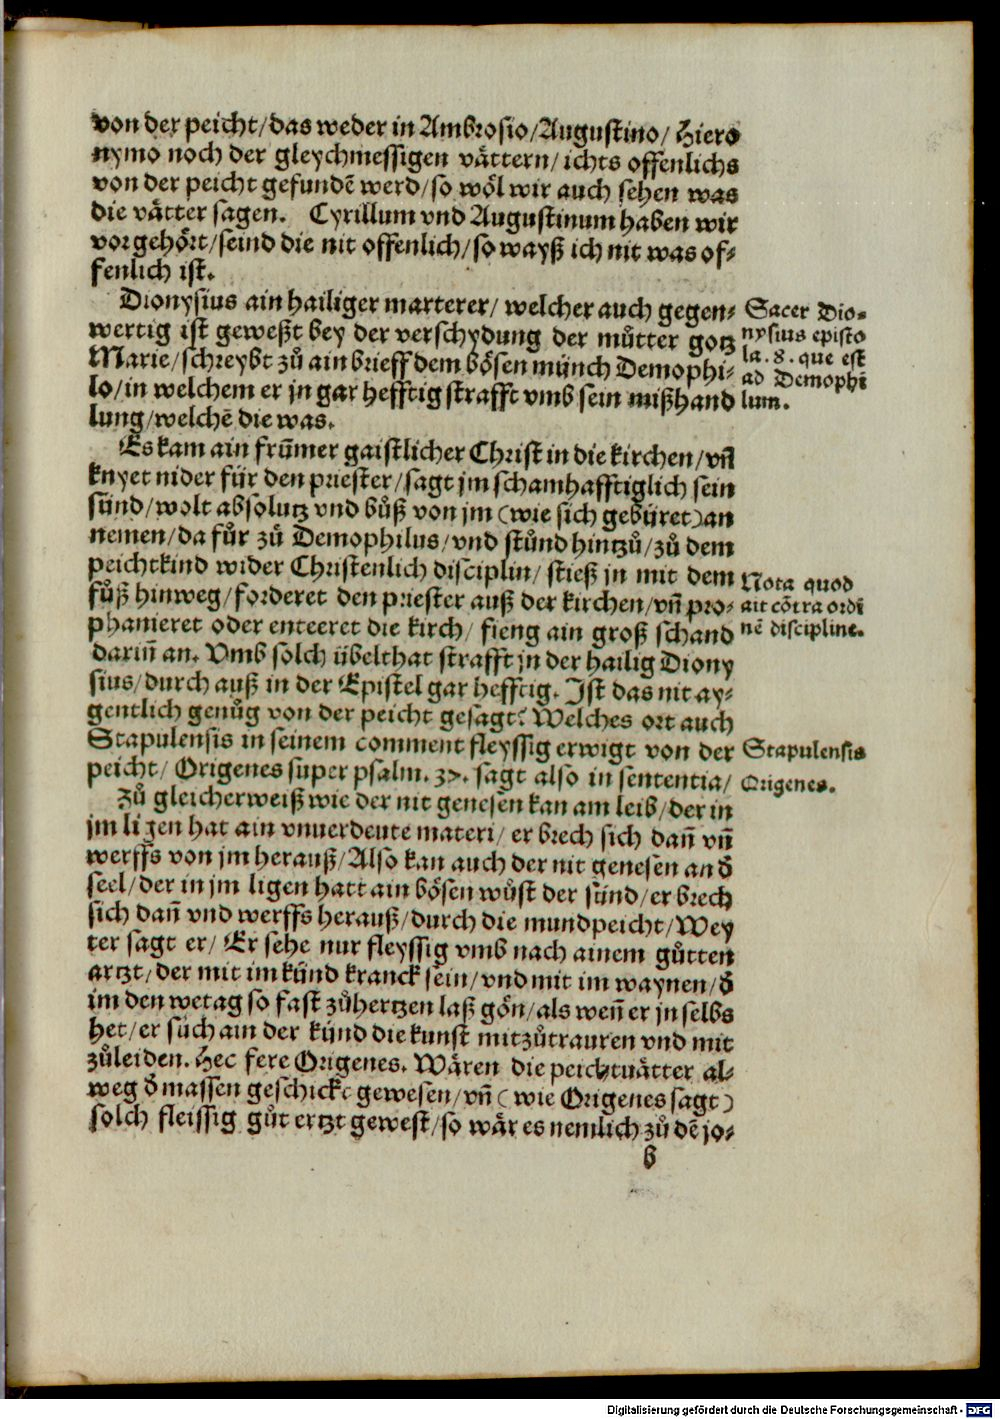 von der peicht/das weder in Ambrosio/Augustino/ Hiero
nymo noch der gleychmessigen vättern/ichts offenlichs
von der peicht gefundē werd/so wöl wir auch sehen was
die vätter sagen. Cyrillum vnd Augustinum haben wir
vorgehört/seind die nit offenlich/so wayß ich nit was of-
fenlich ist.
Dionysius ain hailiger marterer/ welcher auch gegen-
wertig ist geweßt bey der verschydung der můtter gotz
Marie/schreybt zů ain brieff dem bösen münch Demophi-
lo/in welchem er jn gar hefftig strafft vmb sein mißhand
lung/welchē die was.
Sacer Dio-
nysius episto
la. 8. que est
ad Demophi
lum.
Es kam ain frūmer gaistlicher Christ in die kirchen/vñ
knyet nider für den priester/sagt jm schamhafftiglich sein
sünd/wolt absolutz vnd bůß von jm (wie sich gebüret) an
nemen/da fůr zů Demophilus/vnd stůnd hintzů/zů dem
peichtkind wider Christenlich disciplin/ stieß jn mit dem
fůß hinweg/forderet den priester auß der kirchen/vñ pro-
phanieret oder enteeret die kirch/ fieng ain groß schand
dariñ an. Vmb solch übelthat strafft jn der hailig Diony
sius/durch auß in der Epistel gar hefftig. Ist das nit ay-
gentlich genůg von der peicht gesagt? Welches ort auch
Stapulensis in seinem comment fleyssig erwigt von der
peicht/ Origenes super psalm. 37. sagt also in sententia/
Nota quod
ait cōtra ordi
nē discipline.
Stapulensis
Origenes.
Zů gleicherweiß wie der nit genesen kan am leib/der in
jm ligen hat ain vnuerdeute materi/ er brech sich dañ vñ
werffs von jm herauß/Also kan auch der nit genesen an đ
seel/der in jm ligen hatt ain bösen wůst der sünd/er brech
sich dañ vnd werffs herauß/durch die mundpeicht/Wey
ter sagt er/ Er sehe nur fleyssig vmb nach ainem gůtten
artzt/der mit im künd kranck sein/vnd mit im waynen/đ
im den wetag so fast zůhertzen laß gön/als weñ er jn selbs
het/er sůch ain der künd die kunst mitzůtrauren vnd mit
zůleiden. Hec fere Origenes. Wären die peichtuätter al-
weg đ massen geschickt gewesen/vñ (wie Origenes sagt)
solch fleissig gůt ertzt gewest/so wär es nemlich zů dē jo-
b
Digitalisierung gefördert durch die Deutsche Forschungsgemeinschaft - DFG